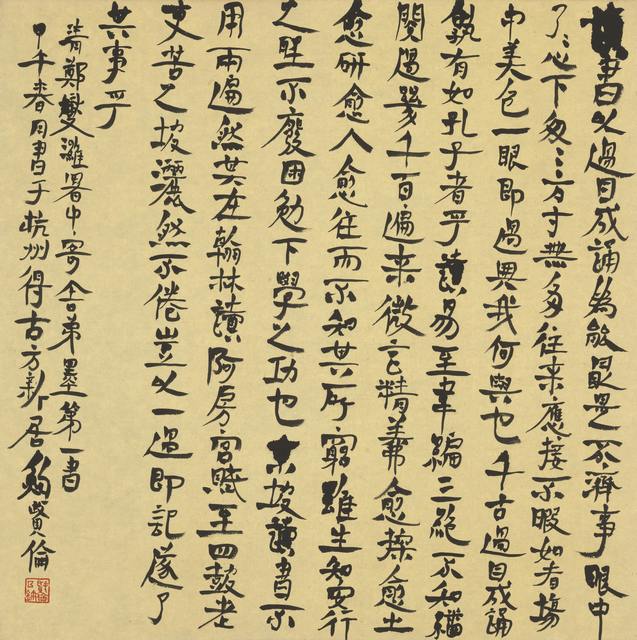 讀書以過目成誦為能最是不濟事眼中
了〻心下匆〻方寸無多往來應接不暇如看場
中美色一眼即過與我何與也千古過目成誦
孰有如孔子者乎讀易至韋編三絕不知繙
閱過幾千百遍來微言精義愈探愈出
愈研愈入愈往而不知其所窮雖生知安行
之聖不廢困勉下學之功也東坡讀書不
用兩遍然其在翰林讀阿房宮賦至四鼓老
吏苦之坡灑然不倦豈以一過即記遂了
其事乎
清鄭燮濰署中寄舍弟墨第一書
甲午春月書于杭州得古方新居鮑賢倫